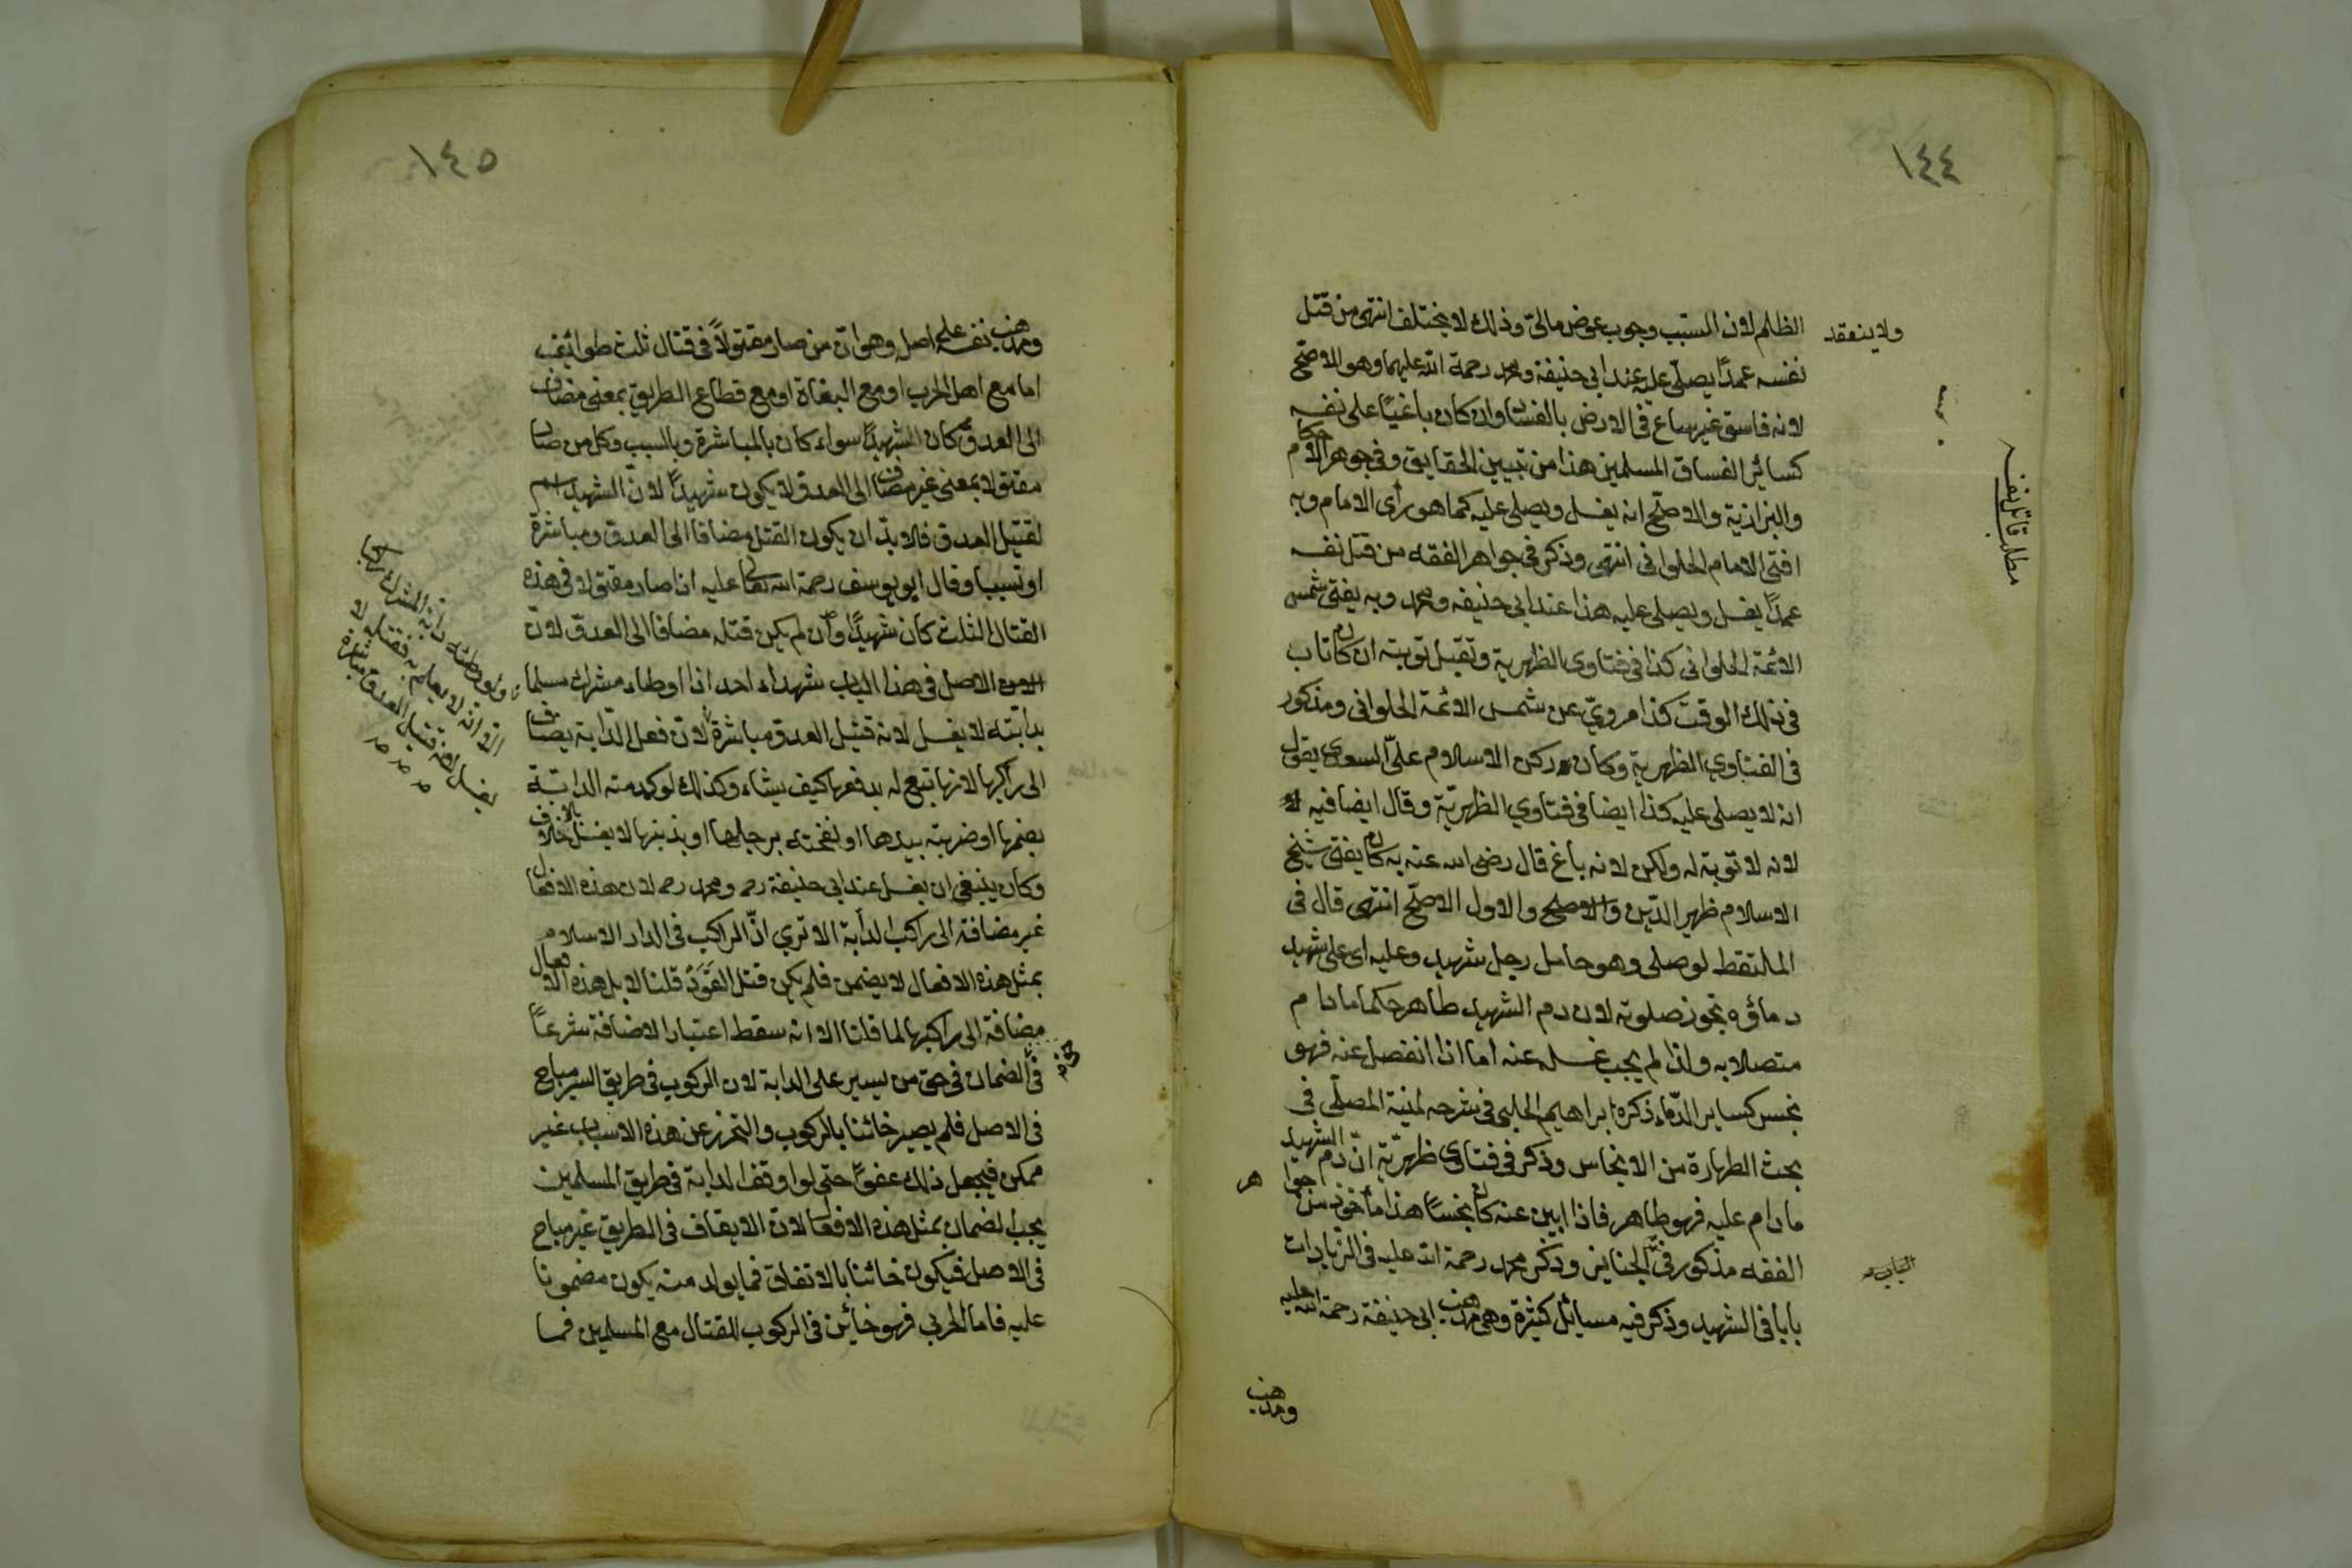 ١٤٤
ولا ينعقد
الظلم لان السبب وجوب عوض مالى وذلك لا يختلف انتهى من قتل
نفسه عمدًا يصلّى عليه عند ابى حنيفة ومحمد رحمة الله عليهما وهو الاصحّ
لانه فاسق غير ساع فى الارض بالفساد وان كان باغيًا على نفسه
كسائر الفساق المسلمين هذا من تبيين الحقايق وفى جوهر الاحكام
والبزازية والاصحّ انه يغسل ويصلى عليه كما هو رأى الامام وبه
افتى الامام الحلوانى انتهى وذكر فى جواهر الفقه من قتل نفسه
عمدًا يغسل ويصلى عليه هذا عند ابى حنيفه ومحمد وبه يفتى شمس
الائمة الحلوانى كذا فى فتاوى الظهرية وتقبل توبته ان كان تاب
فى ذلك الوقت كذا مرويّ عن شمس الائمة الحلوانى ومذكور
فى الفتاوي الظهرية وكان ركن الاسلام علىّ السعدى يقول
انه لا يصلى عليه كذا ايضا فى فتاوي الظهريّة وقال ايضا فيه
لانه لا توبة له ولكن لانه باغ قال رضى الله عنه به كان يفتى شيخ
الاسلام ظهير الدّين والاصلح والاول الاصحّ انتهى قال فى
الملتقط لو صلى وهو حامل رجل شهيد وعليه اى على شهيد
دماؤه تجوز صلوته لان دم الشهيد طاهر حكما مادام
متصلا به ولذا لم يجب غسله عنه اما اذا انفصل عنه فهو
نجس كساير الدّماء ذكره ابراهيم الحلبى فى شرحه لمنية المصلّى فى
بحث الطهارة من الانجاس وذكر فى فتاوى ظهريّة انّ دم الشهيد
مادام عليه فهو طاهر فاذا ابين عنه كان نجسًا هذا مأخوذ من جوا هر
الفقه مذكور فى الجنايز وذكر محمد رحمة الله عليه فى الزيادات
بابا فى الشهيد وذكر فيه مسائل كثيرة وهى مذهب ابى حنيفة رحمة الله عليه
ومذهب
مطلب قاتل نفسه
١٤٥
ومذهب نفسه على اصل وهو ان من صار مقتولاً فى قتال ثلث طوائف
اما مع اهل الحرب او مع البغاة او مع قطاع الطريق بمعنى مضاف
الى العدوّ كان شهيدًا سواء كان بالمباشرة وبالسبب وكل من صار
مقتولا بمعنى غير مضاف الى العدو لا يكون شهيدًا لانّ الشهيد اسم
لقتيل العدو فلا بدّ ان يكون القتل مضافا الى العدو مباشرة
او تسببا وقال ابو يوسف رحمة الله تعالى عليه اذا صار مقتولا فى هذه
القتال الثلث كان شهيدًا وان لم يكن قتله مضافا الى العدوّ لانّ
الاصل فى هذا الباب شهداء احد اذا اوطاء مشرك مسلما
بدابّته لا يغسل لانه قتيل العدو مباشرة لانّ فعل الدّابة يضاف
الى راكبها لانها تبع له يدفعها كيف يشاء وكذلك لو كدمته الدابّة
بفمها او ضربته بيدها او نفحته برجلها او بذنبها لا يغسل بلا خلاف
وكان ينبغى ان يغسل عند ابى حنيفة رحـ ومحمد رحـ لان هذه الافعال
غير مضافة الى راكب الدابة الا تري انّ الراكب فى الدار الاسلام
بمثل هذه الافعال لا يضمن فلم يكن قتل القوَد قلنا لا بل هذه الافعال
مضافة الى راكبها لما قلنا الا انه سقط اعتبار الاضافة شرعًا
فى الضمان فى حق من يسير على الدابة لان الركوب فى طريق السير مباح
فى الاصل فلم يصير خائنا بالركوب والتحرز عن هذه الاسباب غير
ممكن فيجعل ذلك عفوًا حتى لو اوقف الدابة فى طريق المسلمين
يجب الضمان بمثل هذه الافعال لان الايقاف فى الطريق غير مباح
فى الاصل فيكون خائنا بالاتفاق فما يولد منه يكون مضمونا
عليه فاما الحربى فهو خائن فى الركوب للقتال مع المسلمين فما
ولو وطئه دابّة المشرك راكبا
الا انّه لا يعلم به فقتله لا
يغسل لانه قتيل العدو مباشرة